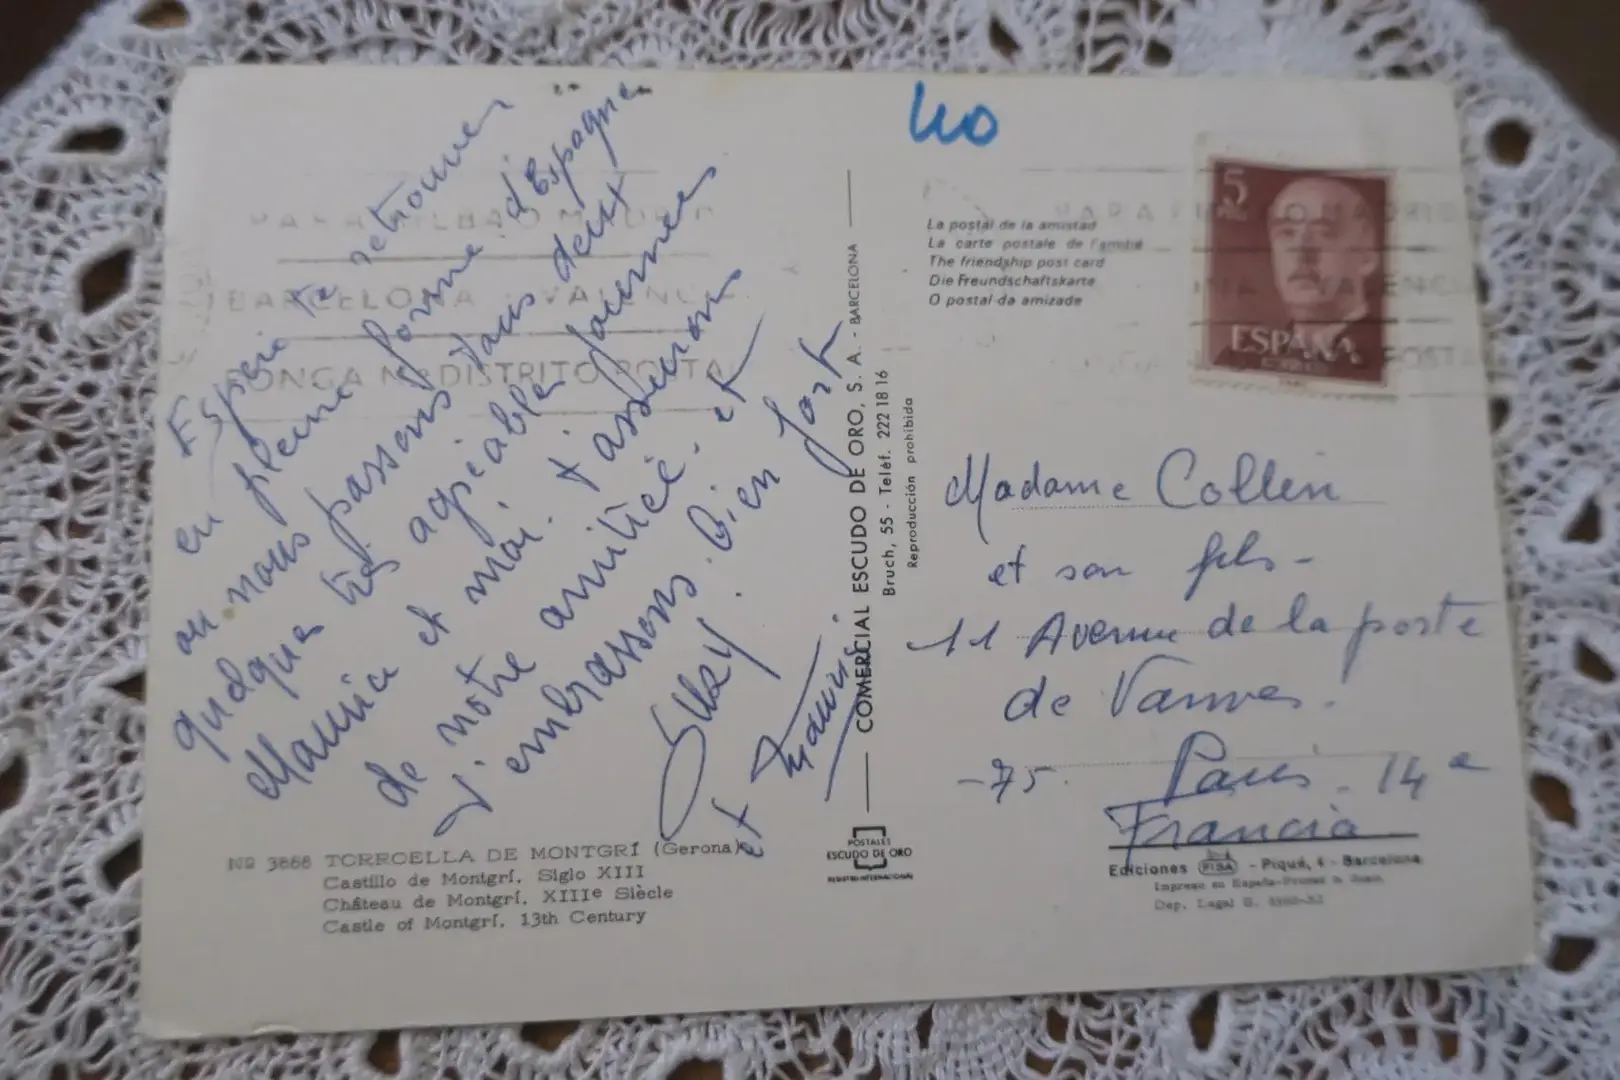 Espère te retrouver
en pleine forme. d'Espagne
où nous passons tous deux
quelques très agréables journées
Maurice et moi. t'assurons
de notre amitié. et
t'embrassons. bien fort
Suzy.
et Maurice.
Nº 3668 TORROELLA DE MONTGRÍ (Gerona)
Castillo de Montgrí, Siglo XIII
Château de Montgrí, XIIIe Siècle
Castle of Montgrí, 13th Century
BARCELONA VALENCIA
PONGA DISTRITO POSTAL
COMERCIAL ESCUDO DE ORO, S. A. - BARCELONA
Bruch, 55 - Teléf. 222 18 16
Reproducción prohibida
POSTALES
ESCUDO DE ORO
REGISTRO INTERNACIONAL
40
La postal de la amistad
La carte postale de l'amitié
The friendship post card
Die Freundschaftskarte
O postal da amizade
5
PTAS
ESPAÑA
CORREOS
Madame Collin
et son fils -
11 Avenue de la porte
de Vanves.
-75. Paris. 14e
Francia
Ediciones PISA - Piqué, 4 - Barcelona
Impreso en España-Printed in Spain
Dep. Legal B.